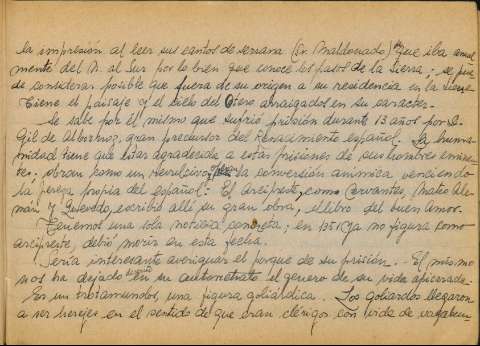 la impresión al leer sus cantos de serrana (Sr. Maldonado) de que iba anual-
mente del N. al Sur por lo bien que conoce los pasos de la Sierra; se pue-
de considerar posible que fuera de su origen a su residencia en la Sierra
Tiene el paisaje y el cielo del Otero arraigados en su caracter.
Se sabe por él mismo que sufrió prisión durante 13 años por D.
Gil de Albornoz, gran precursor del Renacimiento español. La huma-
nidad tiene que estar agradecida a estas prisiones de sus hombres eminen-
tes; obran como un revulsivo, la conversión anímica venciendo
la pereza propia del español: El arcipreste, como Cervantes, Mateo Ale-
mán y Quevedo, escribió allí su gran obra, el libro del buen Amor.
Tenemos una sola noticia concreta; en 1351 ya no figura como
arcipreste, debió morir en esta fecha.
Sería interesante averiguar el porque de su prisión. - El mismo
nos ha dejado en su autorretrato el genero de su vida apicarada-
Es un trotamundos, una figura goliárdica. Los goliardos llegaron
a ser herejes en el sentido de que eran clérigos con vida de vagabun-